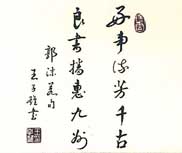 好事流芳千古
良书播惠九州
郭沫若句
王子钰书